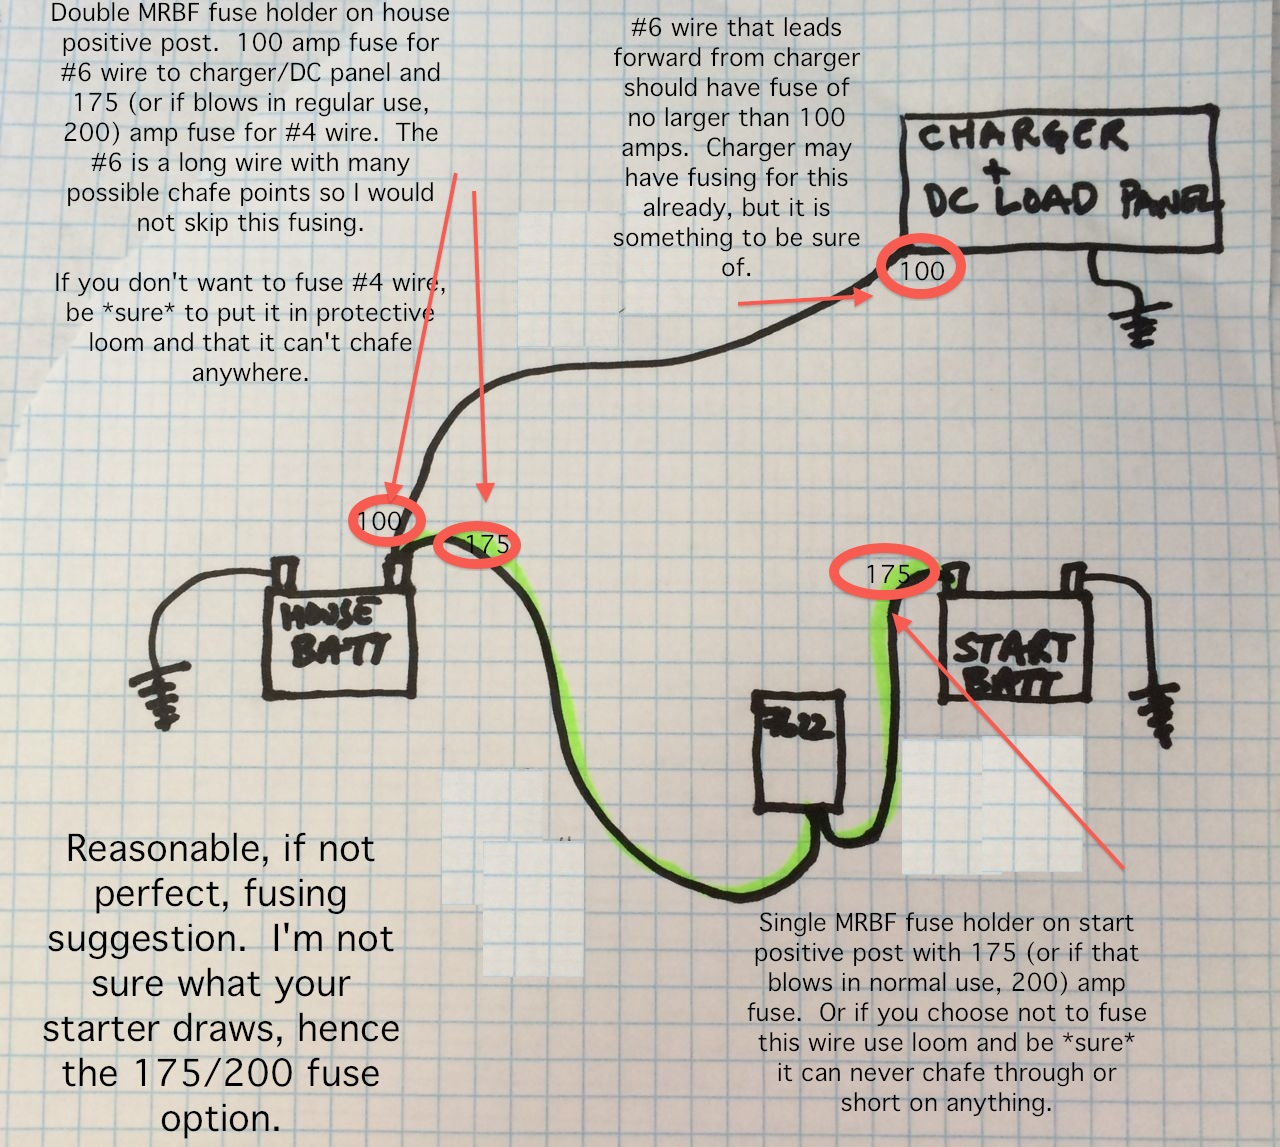 Double MRBF fuse holder on house
positive post.  100 amp fuse for
#6 wire to charger/DC panel and
175 (or if blows in regular use,
200) amp fuse for #4 wire.  The
#6 is a long wire with many
possible chafe points so I would
not skip this fusing.
If you don't want to fuse #4 wire,
be *sure* to put it in protective
loom and that it can't chafe
anywhere.
#6 wire that leads
forward from charger
should have fuse of
no larger than 100
amps.  Charger may
have fusing for this
already, but it is
something to be sure
of.
CHARGER
+
DC LOAD PANEL
100
100
175
175
HOUSE
BATT
START
BATT
7622
Reasonable, if not
perfect, fusing
suggestion.  I'm not
sure what your
starter draws, hence
the 175/200 fuse
option.
Single MRBF fuse holder on start
positive post with 175 (or if that
blows in normal use, 200) amp
fuse.  Or if you choose not to fuse
this wire use loom and be *sure*
it can never chafe through or
short on anything.